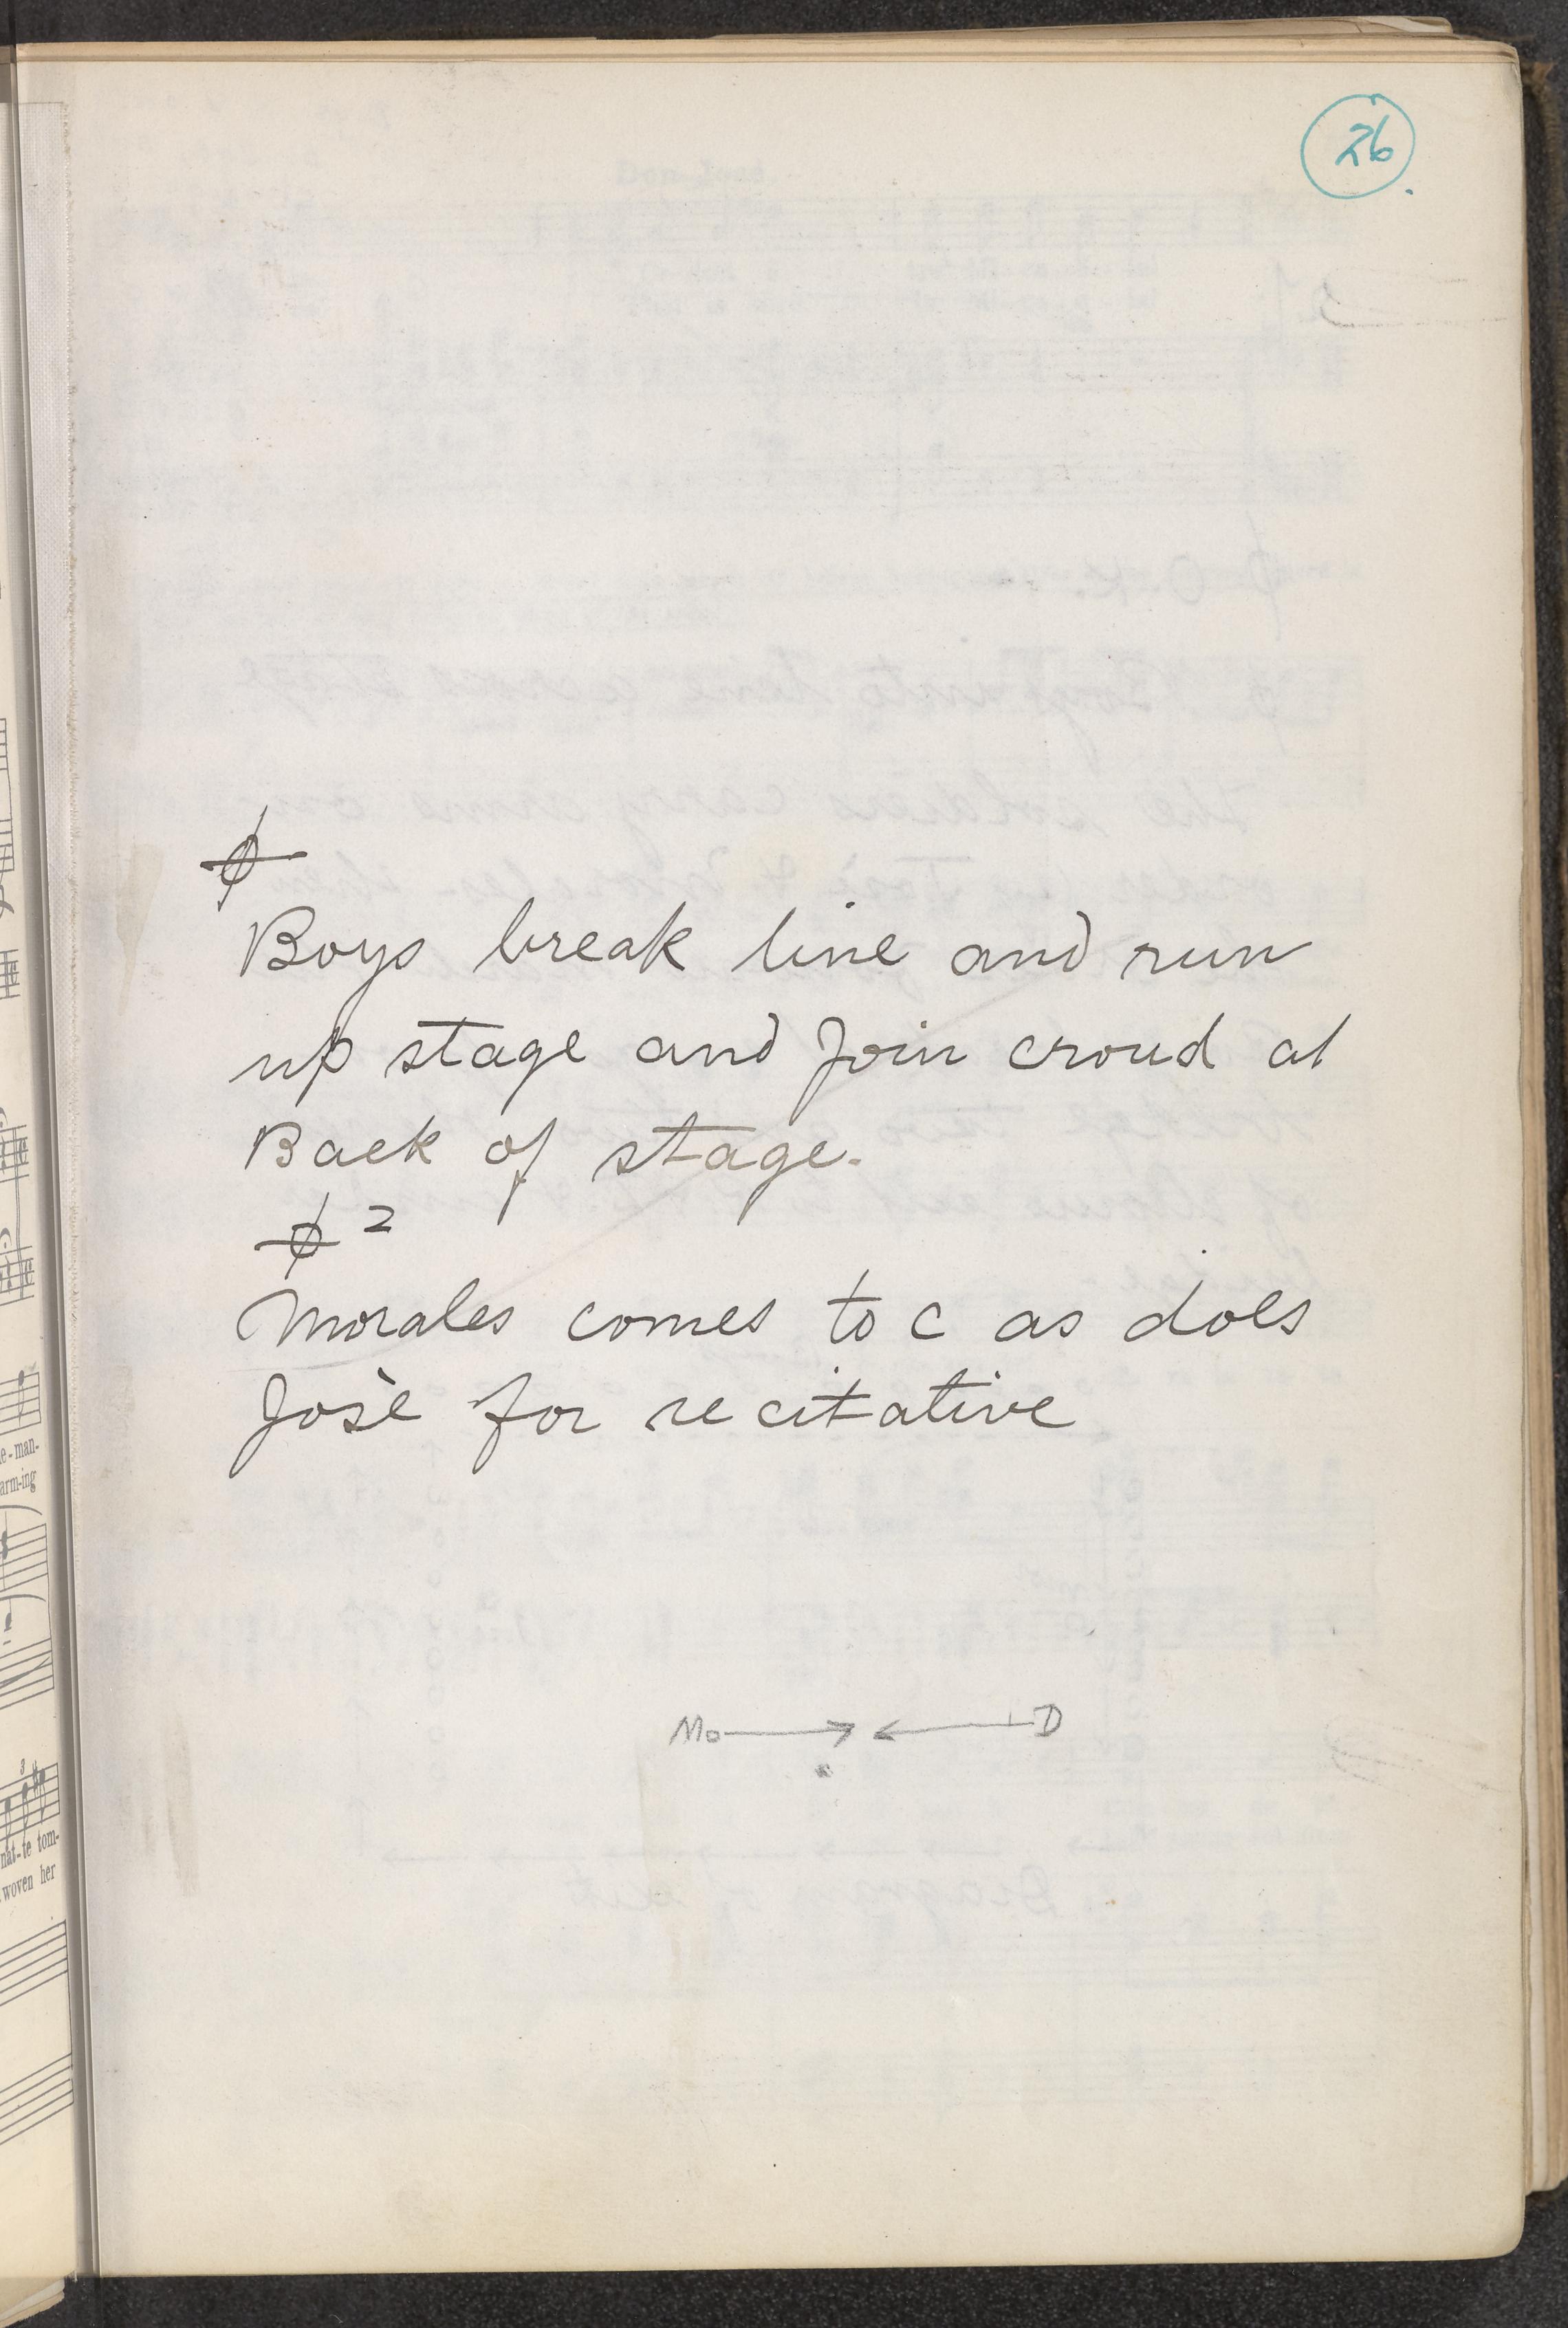 26
ϕ
Boys break line and run
up stage and Join croud at
Back of stage.
ϕ 2
Morales comes to C as does
Josè for recitative
Mo → ← D
e-man-
arm-ing
3
nat-te tom-
woven her